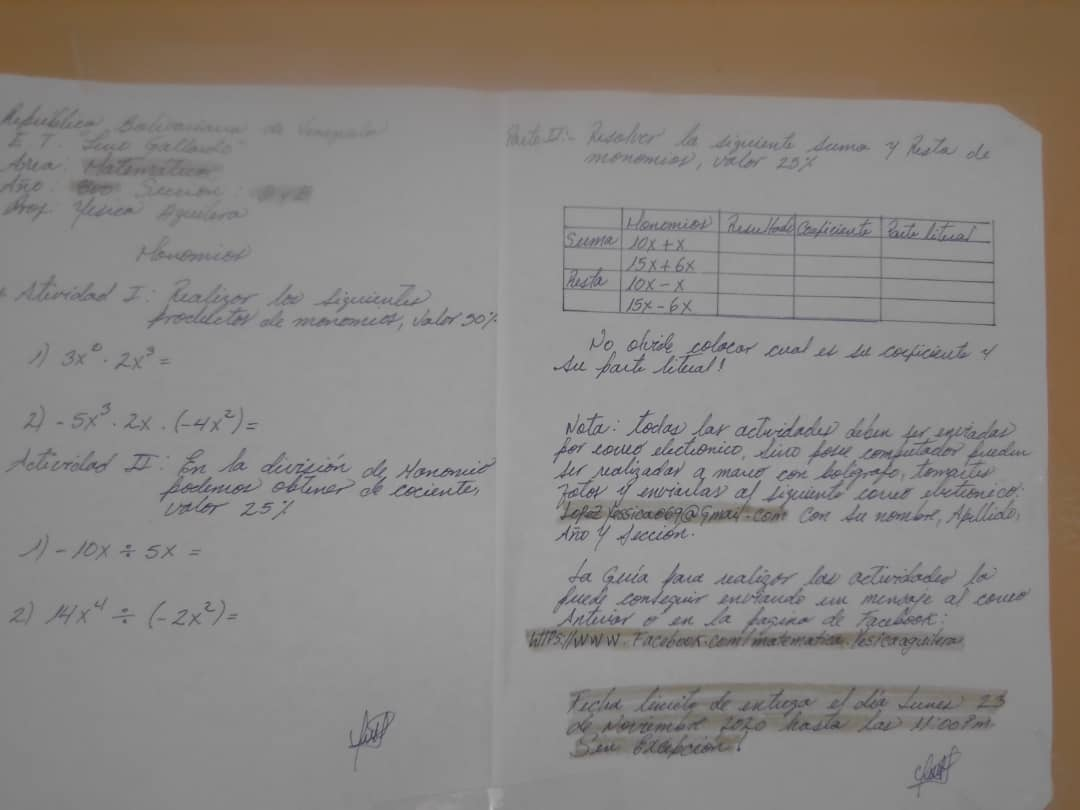 República Bolivariana de Venezuela
E.T. "Lino Gallardo"
Area: Matemática
Año: 3ro Sección:
Prof. Yesica Aguilera
Monomios
Atividad I: Realizar los siguientes
productos de monomios, Valor 50%
1) 3x⁰ · 2x³ =
2) -5x³ · 2x · (-4x²) =
Actividad II: En la división de Monomio
podemos obtener de cociente,
valor 25%
1) -10x ÷ 5x =
2) 14x⁴ ÷ (-2x²) =
Parte II:- Resolver la siguiente suma y Resta de
monomios, valor 25%
Monomios Resultado Coeficiente Parte literal
Suma 10x + x
15x + 6x
Resta 10x - x
15x - 6x
No olvide colocar cual es su coeficiente y
su parte literal!
Nota: todas las actividades deben ser enviadas
por correo electronico, sino posee computador pueden
ser realizadas a mano con bolígrafo, tomarles
fotos y enviarlas al siguiente correo electronico:
LopezYessica069@gmail.com Con su nombre, Apellido,
Año y Sección.
La Guía para realizar las actividades la
puede conseguir enviando un mensaje al correo
Anterior o en la pagina de Facebook:
HTTPS://WWW.Facebook.com/matematica.Yesicaaguilera
Fecha limite de entrega el día Lunes 23
de Noviembre 2020 hasta las 11:00Pm
Sin Excepción!